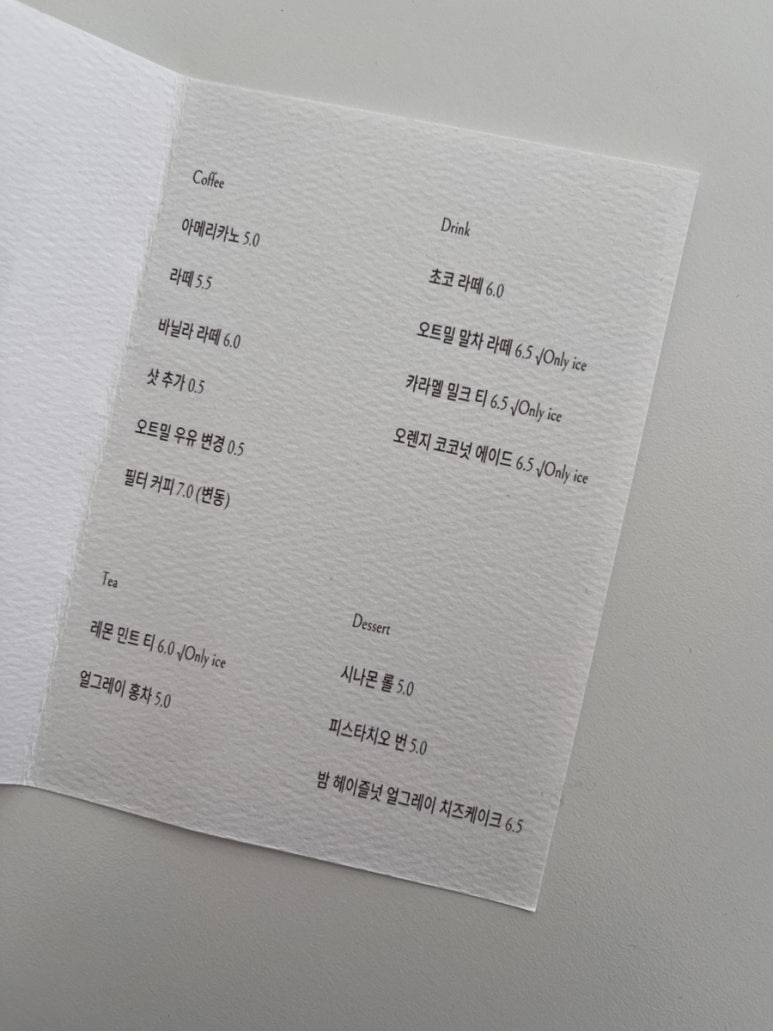 Coffee
아메리카노 5.0
라떼 5.5
바닐라 라떼 6.0
샷 추가 0.5
오트밀 우유 변경 0.5
필터 커피 7.0 (변동)
Drink
초코 라떼 6.0
오트밀 말차 라떼 6.5 √Only ice
카라멜 밀크 티 6.5 √Only ice
오렌지 코코넛 에이드 6.5 √Only ice
Tea
레몬 민트 티 6.0 √Only ice
얼그레이 홍차 5.0
Dessert
시나몬 롤 5.0
피스타치오 번 5.0
밤 헤이즐넛 얼그레이 치즈케이크 6.5